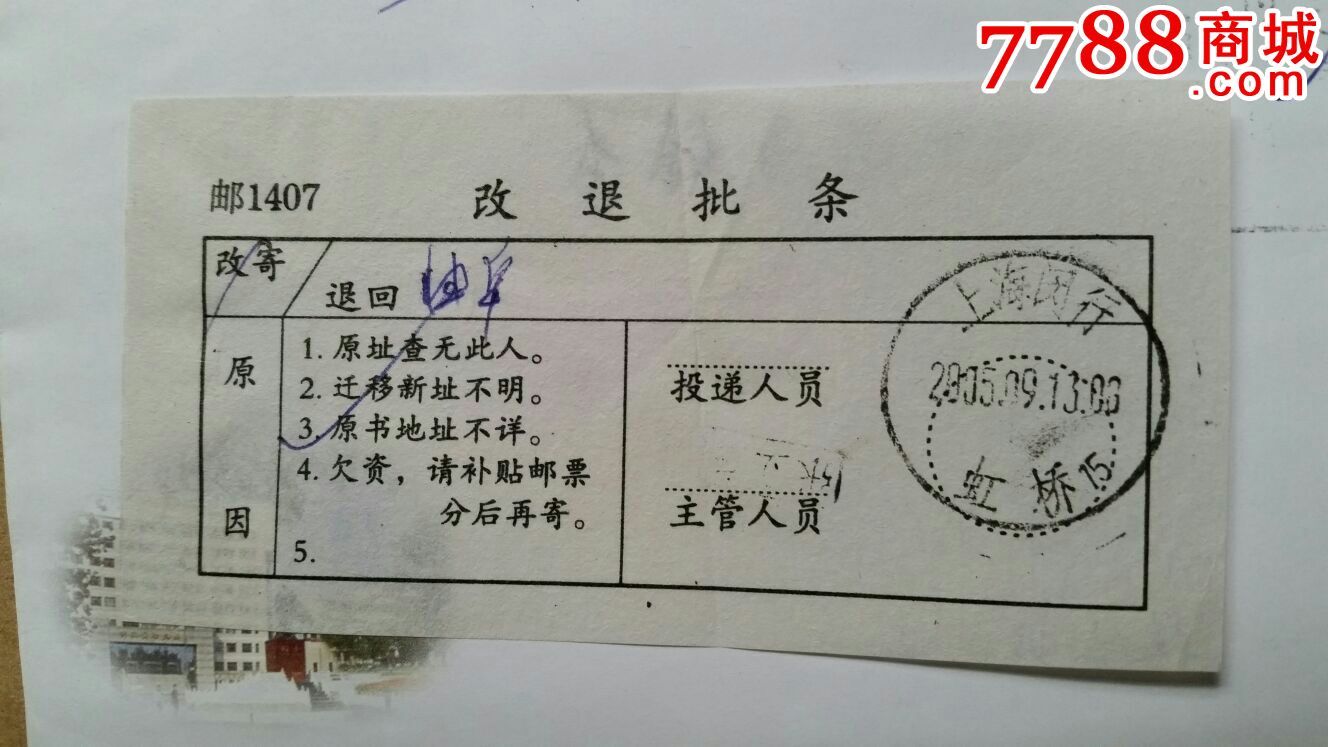 7788商城
.com
邮1407 改退批条
改寄
退回
原因
1. 原址查无此人。
2. 迁移新址不明。
3. 原书地址不详。
4. 欠资，请补贴邮票
分后再寄。
5.
投递人员
主管人员
上海闵行
2005.09.13.00
虹桥15